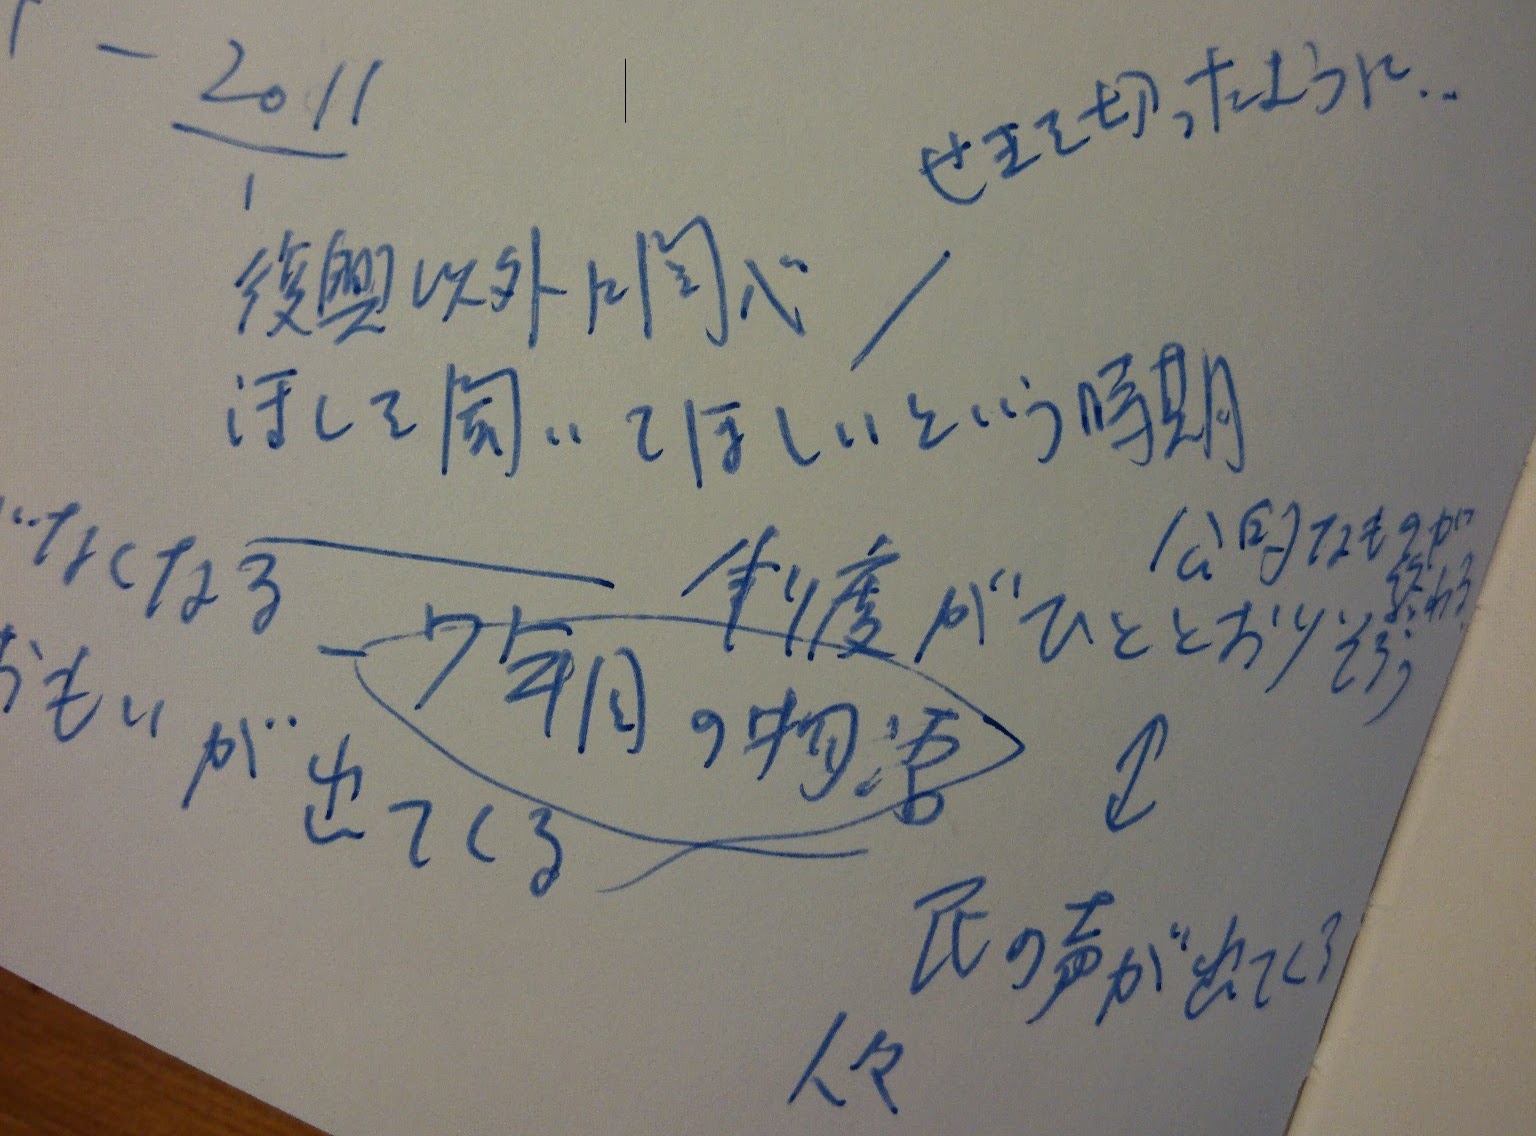 ― 2011
せきを切ったように...
復興以外に関心
ほして聞いてほしいという時期
公的なものが
終わる
がなくなる
制度がひととおりそろう
7年目の物語
おもいが出てくる
民の声が出てくる
人々